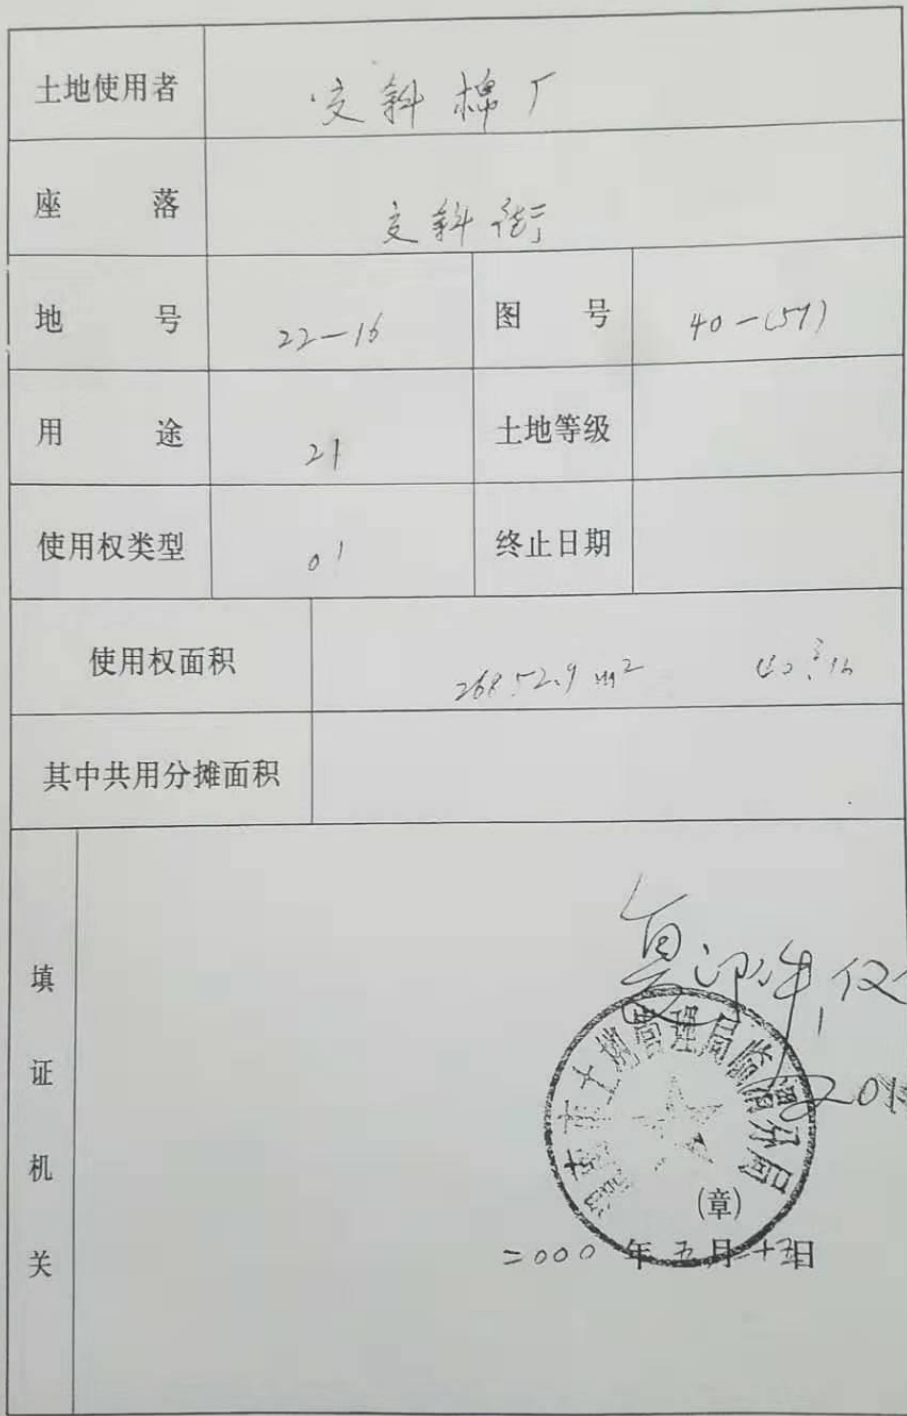 土地使用者 交斜棉厂
座落 交斜街
地号 22-16 图号 40-(57)
用途 21 土地等级
使用权类型 01 终止日期
使用权面积 26852.9 m²
其中共用分摊面积
填证机关
复印件,仅
渭南市土地管理局临渭分局
201
(章)
二000年五月十五日